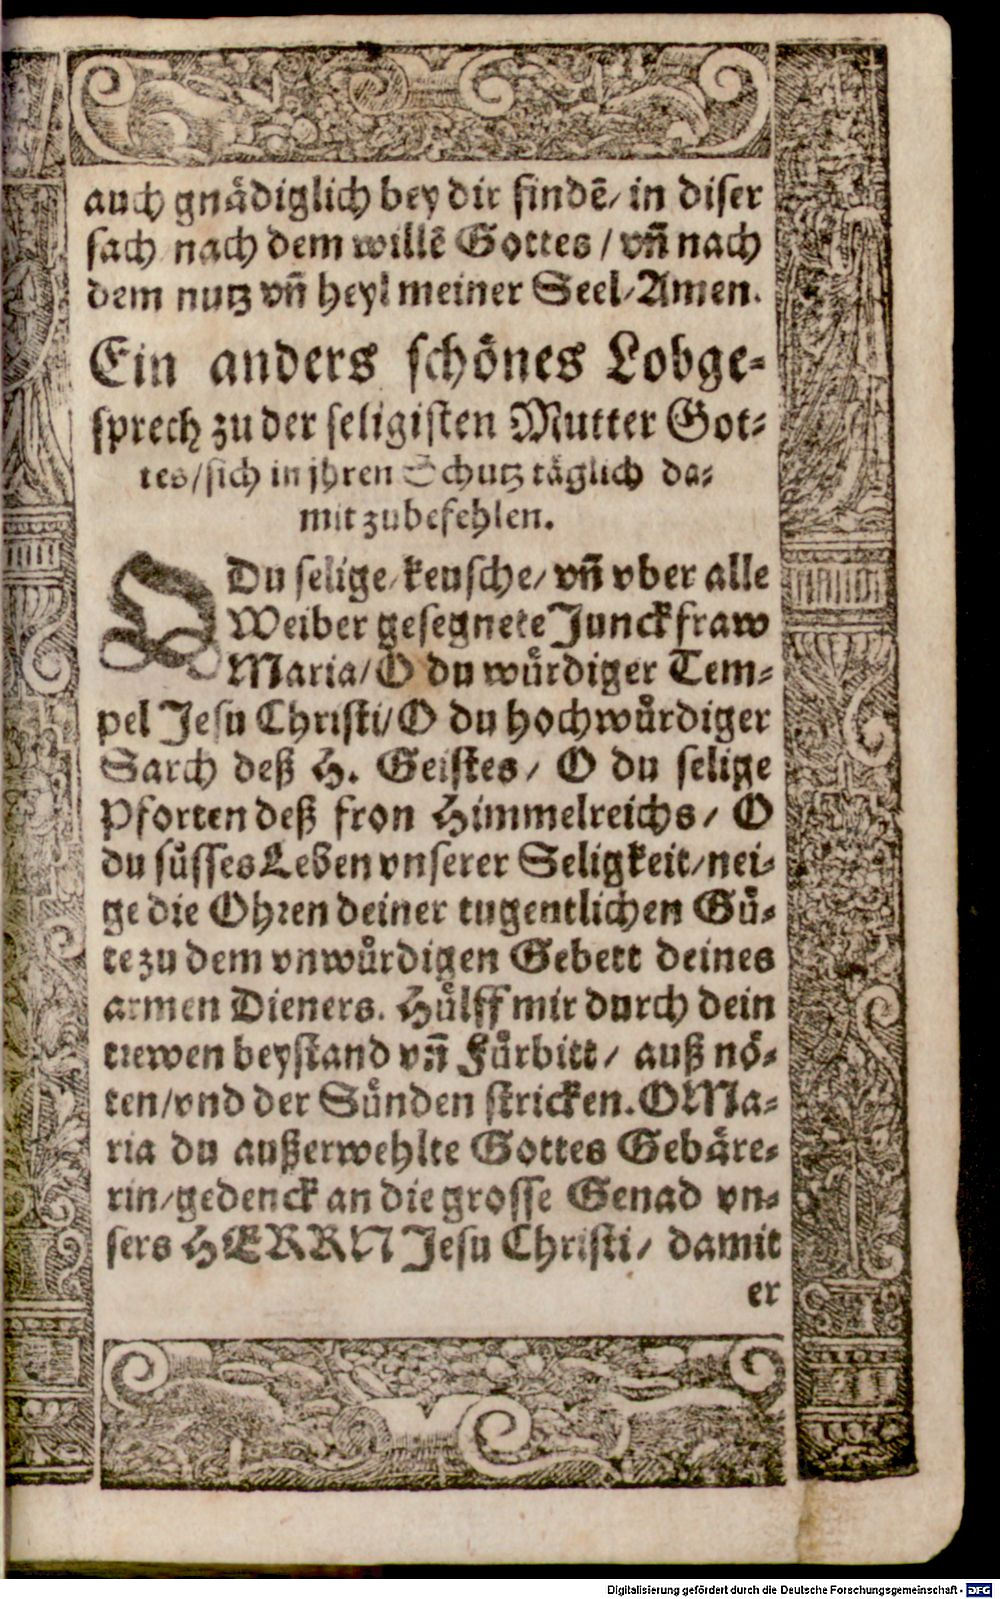 auch gnådiglich bey dir findẽ/ in diser
sach nach dem willẽ Gottes / vñ nach
dem nutz vñ heyl meiner Seel/ Amen.
Ein anders schönes Lobge-
sprech zu der seligisten Mutter Got-
tes/ sich in jhren Schutz täglich da-
mit zubefehlen.
O Du selige/ keusche/ vñ vber alle
Weiber gesegnete Junckfraw
Maria/ O du wůrdiger Tem-
pel Jesu Christi/ O du hochwůrdiger
Sarch deß H. Geistes/ O du selige
Pforten deß fron Himmelreichs/ O
du sůsses Leben vnserer Seligkeit/ nei-
ge die Ohren deiner tugentlichen Gů-
te zu dem vnwůrdigen Gebett deines
armen Dieners. Hůlff mir durch dein
trewen beystand vñ Fůrbitt/ auß nö-
ten/ vnd der Sůnden stricken. O Ma-
ria du außerwehlte Gottes Gebåre-
rin/ gedenck an die grosse Genad vn-
sers HERRN Jesu Christi/ damit
er
Digitalisierung gefördert durch die Deutsche Forschungsgemeinschaft - DFG